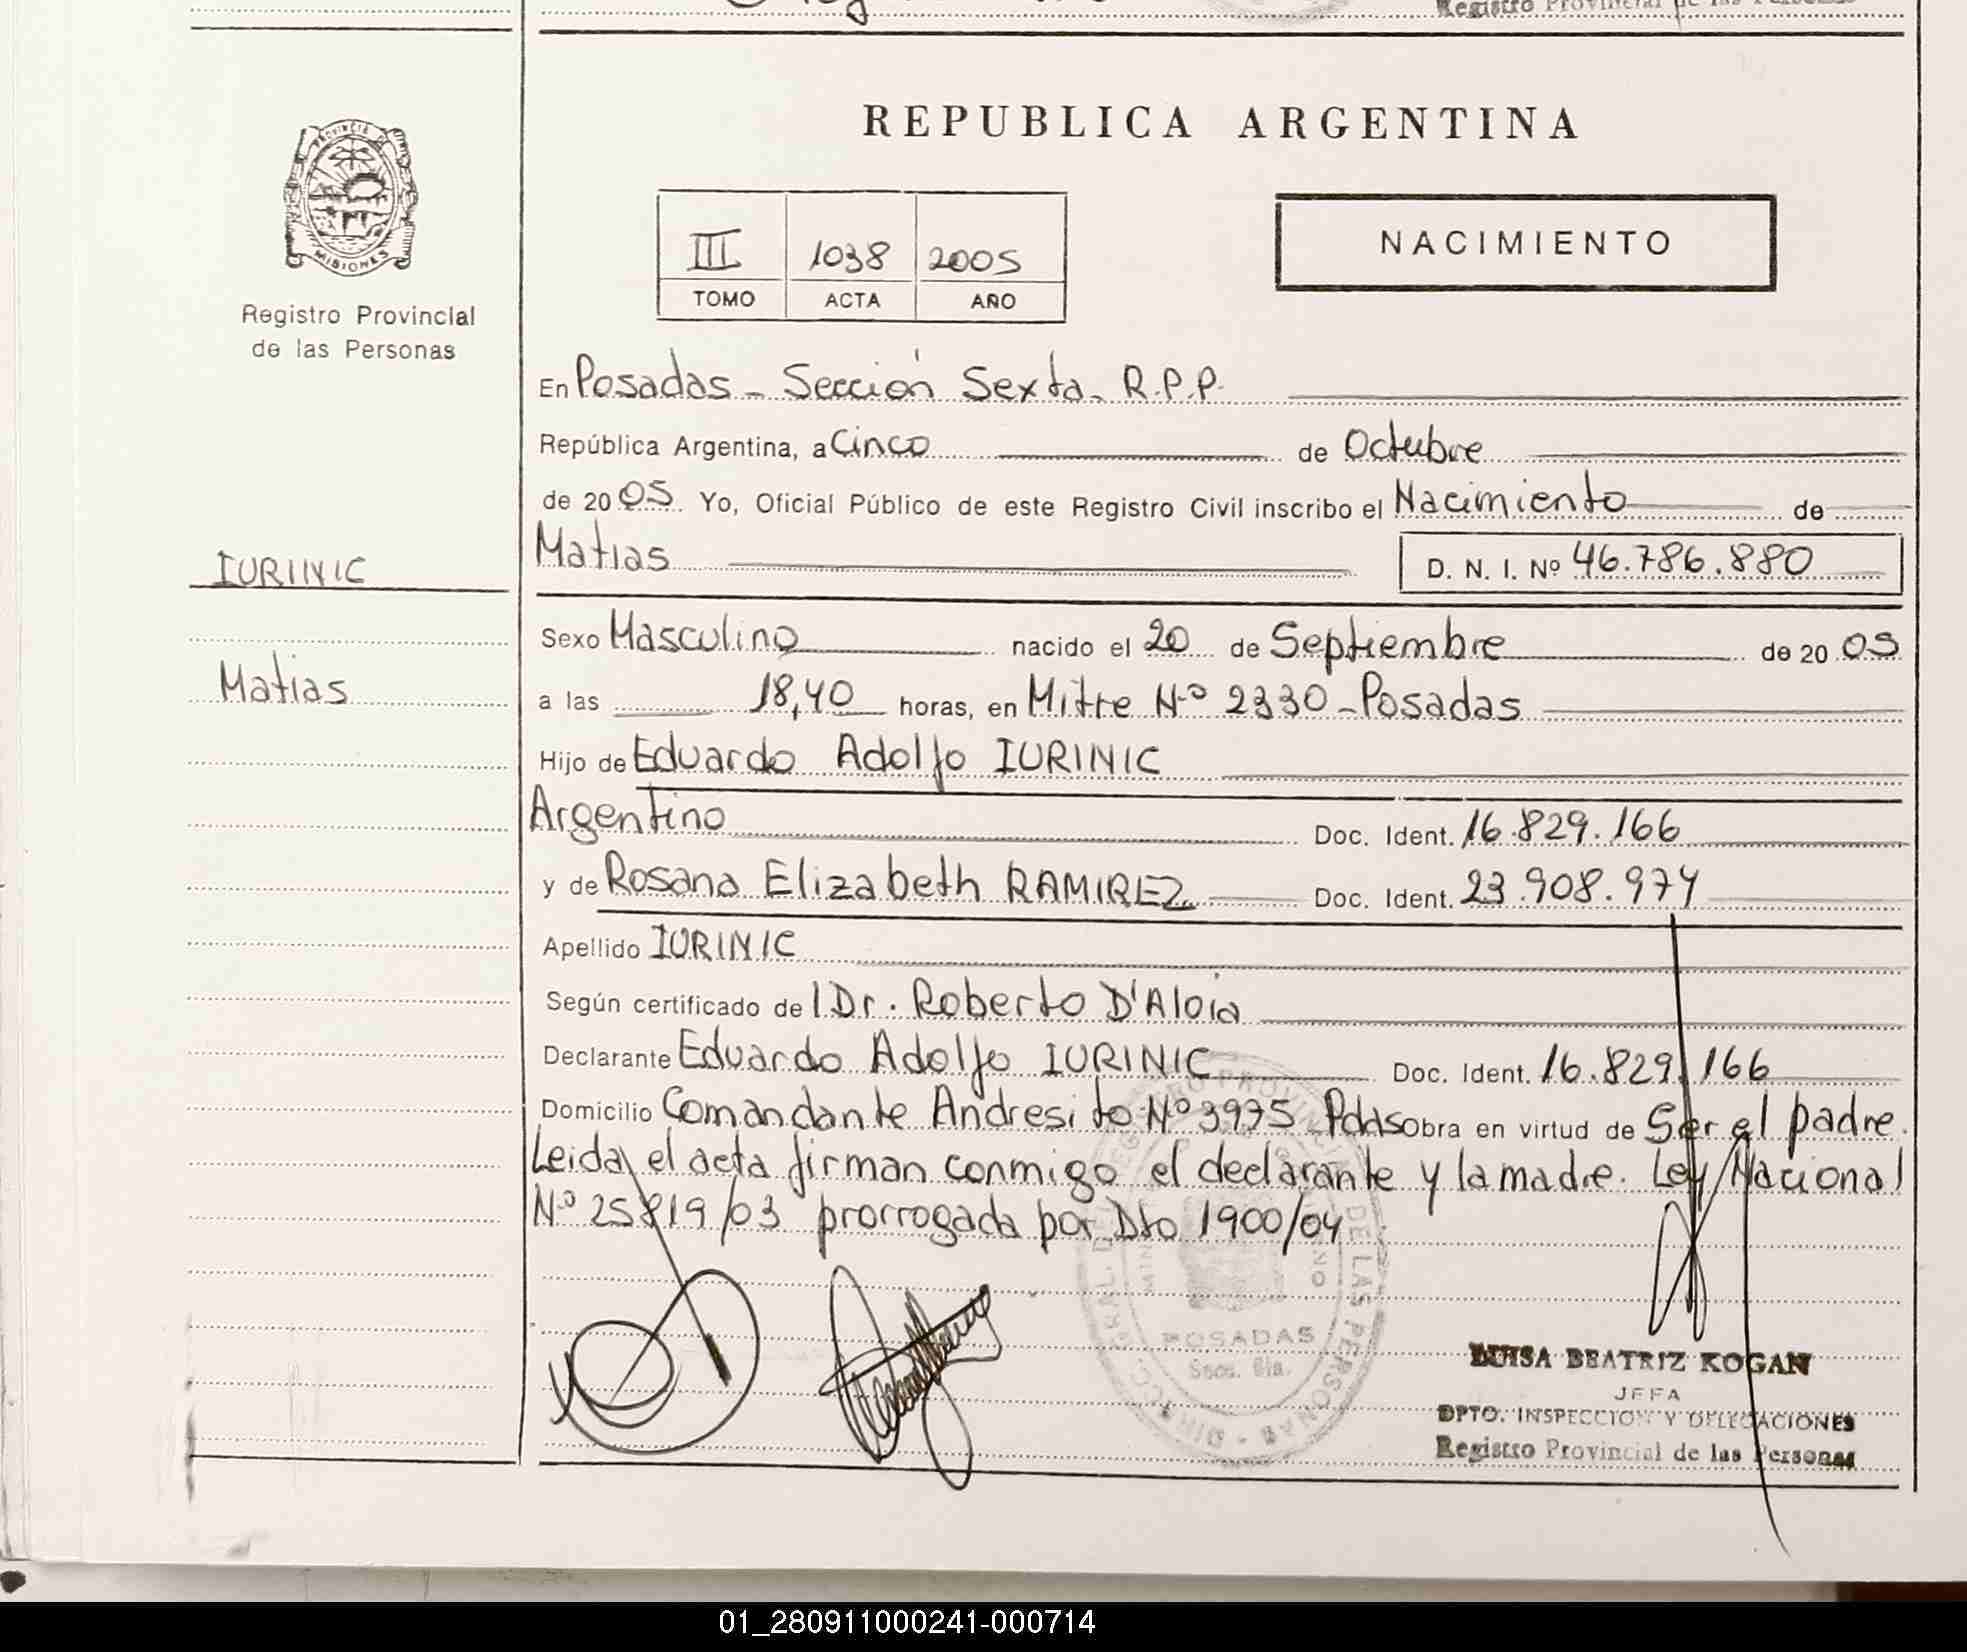 Registro Provincial de las Personas
REPUBLICA ARGENTINA
PROVINCIA DE
MISIONES
Registro Provincial
de las Personas
III 1038 2005
TOMO ACTA AÑO
NACIMIENTO
En Posadas - Sección Sexta. R.P.P.
República Argentina, a Cinco de Octubre
de 2005. Yo, Oficial Público de este Registro Civil inscribo el Nacimiento de
IURINIC
Matias D. N. I. Nº 46.786.880
Sexo Masculino nacido el 20 de Septiembre de 2005
Matias
a las 18,40 horas, en Mitre Nº 2330 - Posadas
Hijo de Eduardo Adolfo IURINIC
Argentino Doc. Ident. 16.829.166
y de Rosana Elizabeth RAMIREZ Doc. Ident. 23.908.974
Apellido IURINIC
Según certificado de l Dr. Roberto D'Aloia
Declarante Eduardo Adolfo IURINIC Doc. Ident. 16.829.166
Domicilio Comandante Andresito Nº 3975 Pdas obra en virtud de Ser el padre.
Leida el acta firman conmigo el declarante y la madre. Ley Nacional
Nº 25819/03 prorrogada por Dto 1900/04
POSADAS
LUISA BEATRIZ KOGAN
JEFA
DPTO. INSPECCION Y DELEGACIONES
Registro Provincial de las Personas
01_280911000241-000714